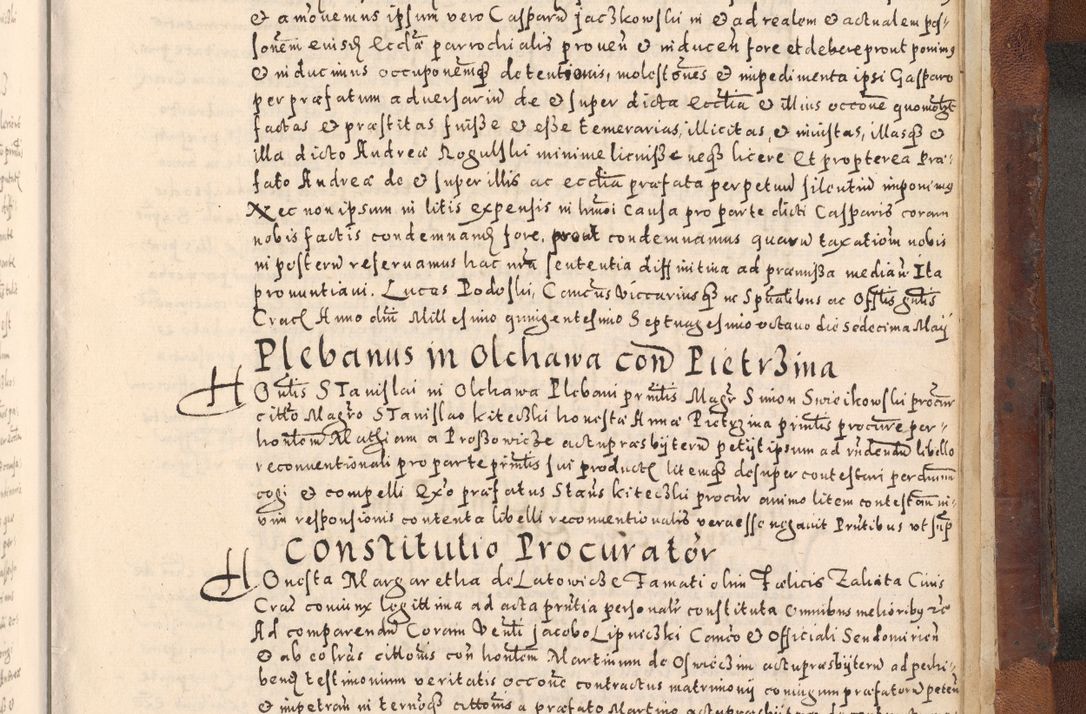 & amovemus ipsum vero Casparū Jaczkowski in & ad realem & actualem pos-
sonem eiusdʒ Ecclæ parrochialis proven & inducen fore et debere prout ponimus
& inducimus occuponemqʒ detentionis, molestones & impedimenta ipsi Gasparo
per præfatum adversariū de & super dicta ecclia & illius occone quomolbt
factas & præstitas fuisse & esse temerarias, illicitas, & iniustas, illasqʒ &
illa dicto Andreæ Rogulski minime licuisse neqʒ licere Et propterea Præ-
fato Andreæ de & super illis ac ecclia præfata perpetuū silentiū imponimus
Nec non ipsum in litis expensis in hmōi causa pro parte dicti Casparis coram
nobis factis condemnandʒ fore, prout condemnamus quarū taxationē nobis
in posterū reservamus hac nrā sententia diffinitiva ad præmissa median Ita
pronuntiavi. Lucas Podoski, Cancūs Viccariusqʒ in Spualibus ac Offlis gnlis
Crac Anno dni Millesimo quingentesimo Septuagesimo octavo die sedecima Maij
Plebanus in Olchawa con Pietrzina
Honlis STanislai in Olchawa Plebani prntis Magr Simon Swieikowski procur
citto Magro STanislao kiteczki honesta Annæ Pietrzina prīntis procure per-
honlem Mathiam a Proszowicze actu præsbyterū petijt ipsum ad rndendū libello
reconventionali pro parte prīntis sui producte litemqʒ desuper contestari perdnum
cogi & compelli Exo præfatus Staus kiteczki procur animo litem contestan ni-
vim responsionis contenta libelli reconventionalis vera esse negavit Prntibus ut sup
Constitutio Procurator
Honesta Margaretha de Latowicze Famati olim Fœlicis Zalista Civis
Crac coniunx legittima ad acta prntia personalr constituta omnibus melioribʒ &c
Ad comparendū Coram Venli Jacobo Lipniczki Canco & Officiali Sendomirien
& ab eo lras cittonis con honlem Martinum de Oswieczim actu præsbyterū ad perhi-
bendʒ testimonium veritatis occone contractus matrimonij coniugum præfatorū peten
& impetran in ternoqʒ cittonis a præfato Martino